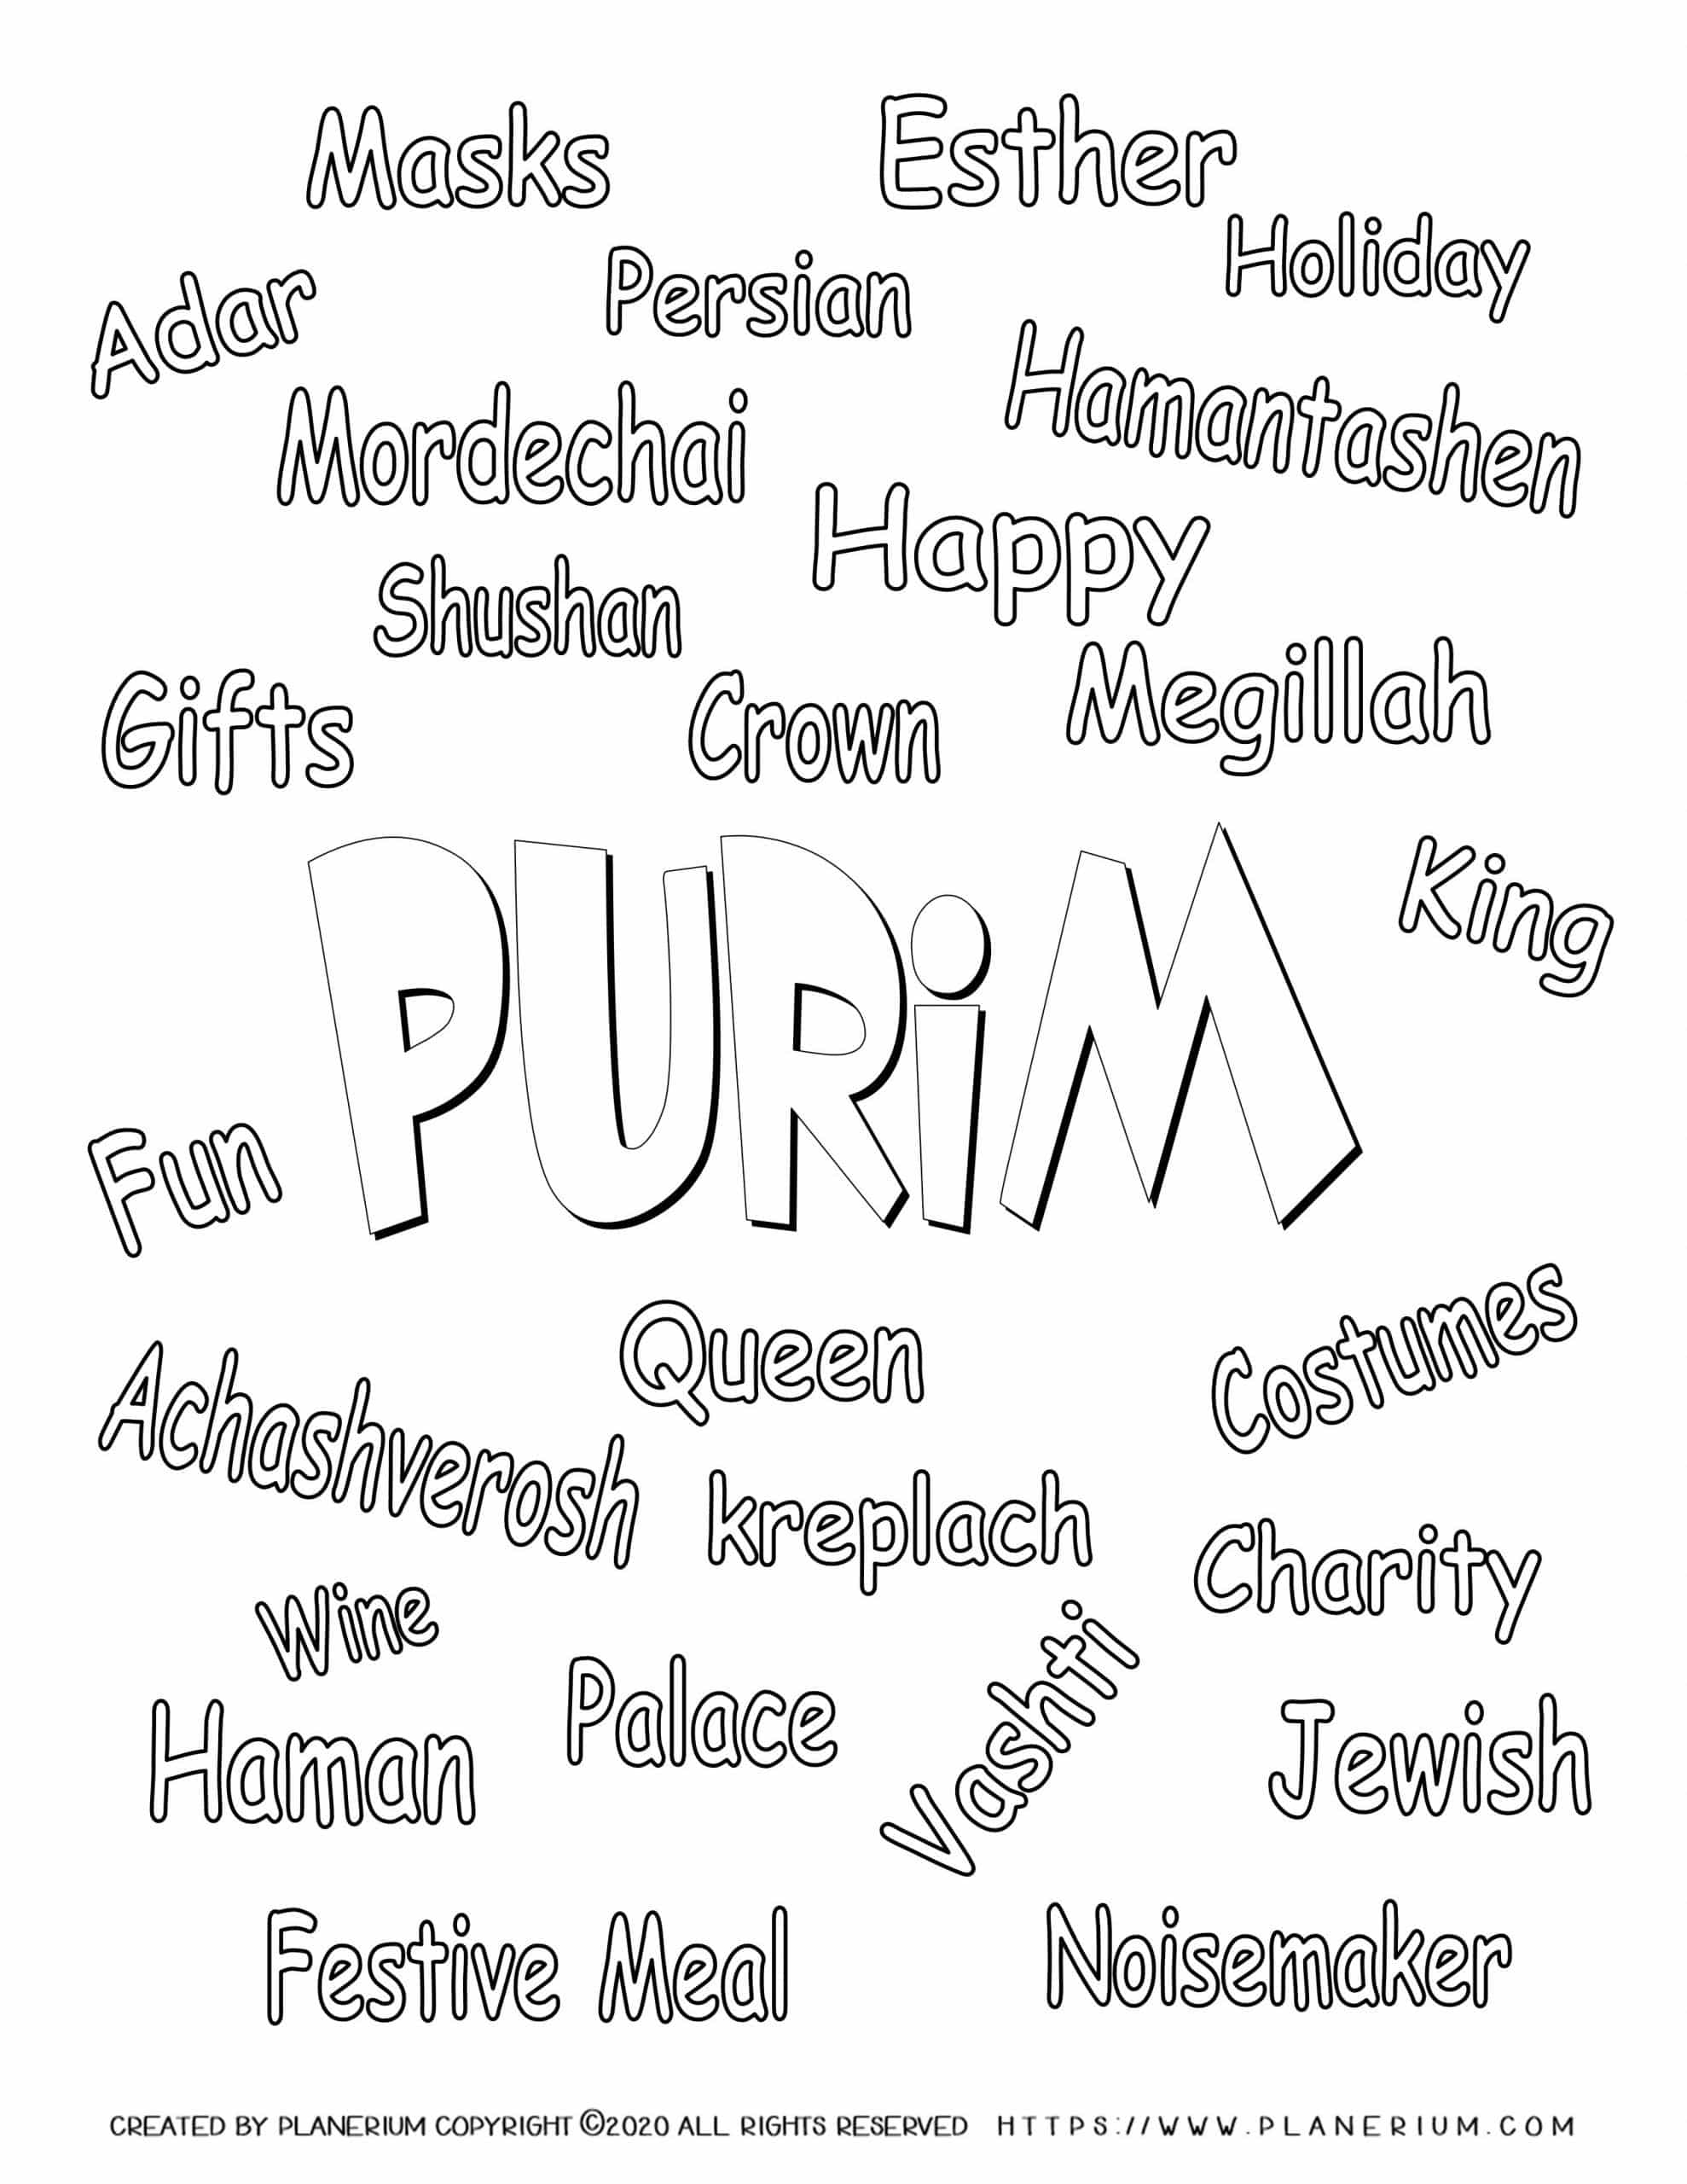 Masks
Esther
Holiday
Adar
Persian
Hamantashen
Mordechai
Happy
Shushan
Megillah
Gifts
Crown
PURiM
King
Fun
Queen
Costumes
Achashverosh
kreplach
Charity
Wine
Palace
Vashti
Haman
Jewish
Festive Meal
Noisemaker
CREATED BY PLANERIUM COPYRIGHT ©2020 ALL RIGHTS RESERVED HTTPS://WWW.PLANERIUM.COM